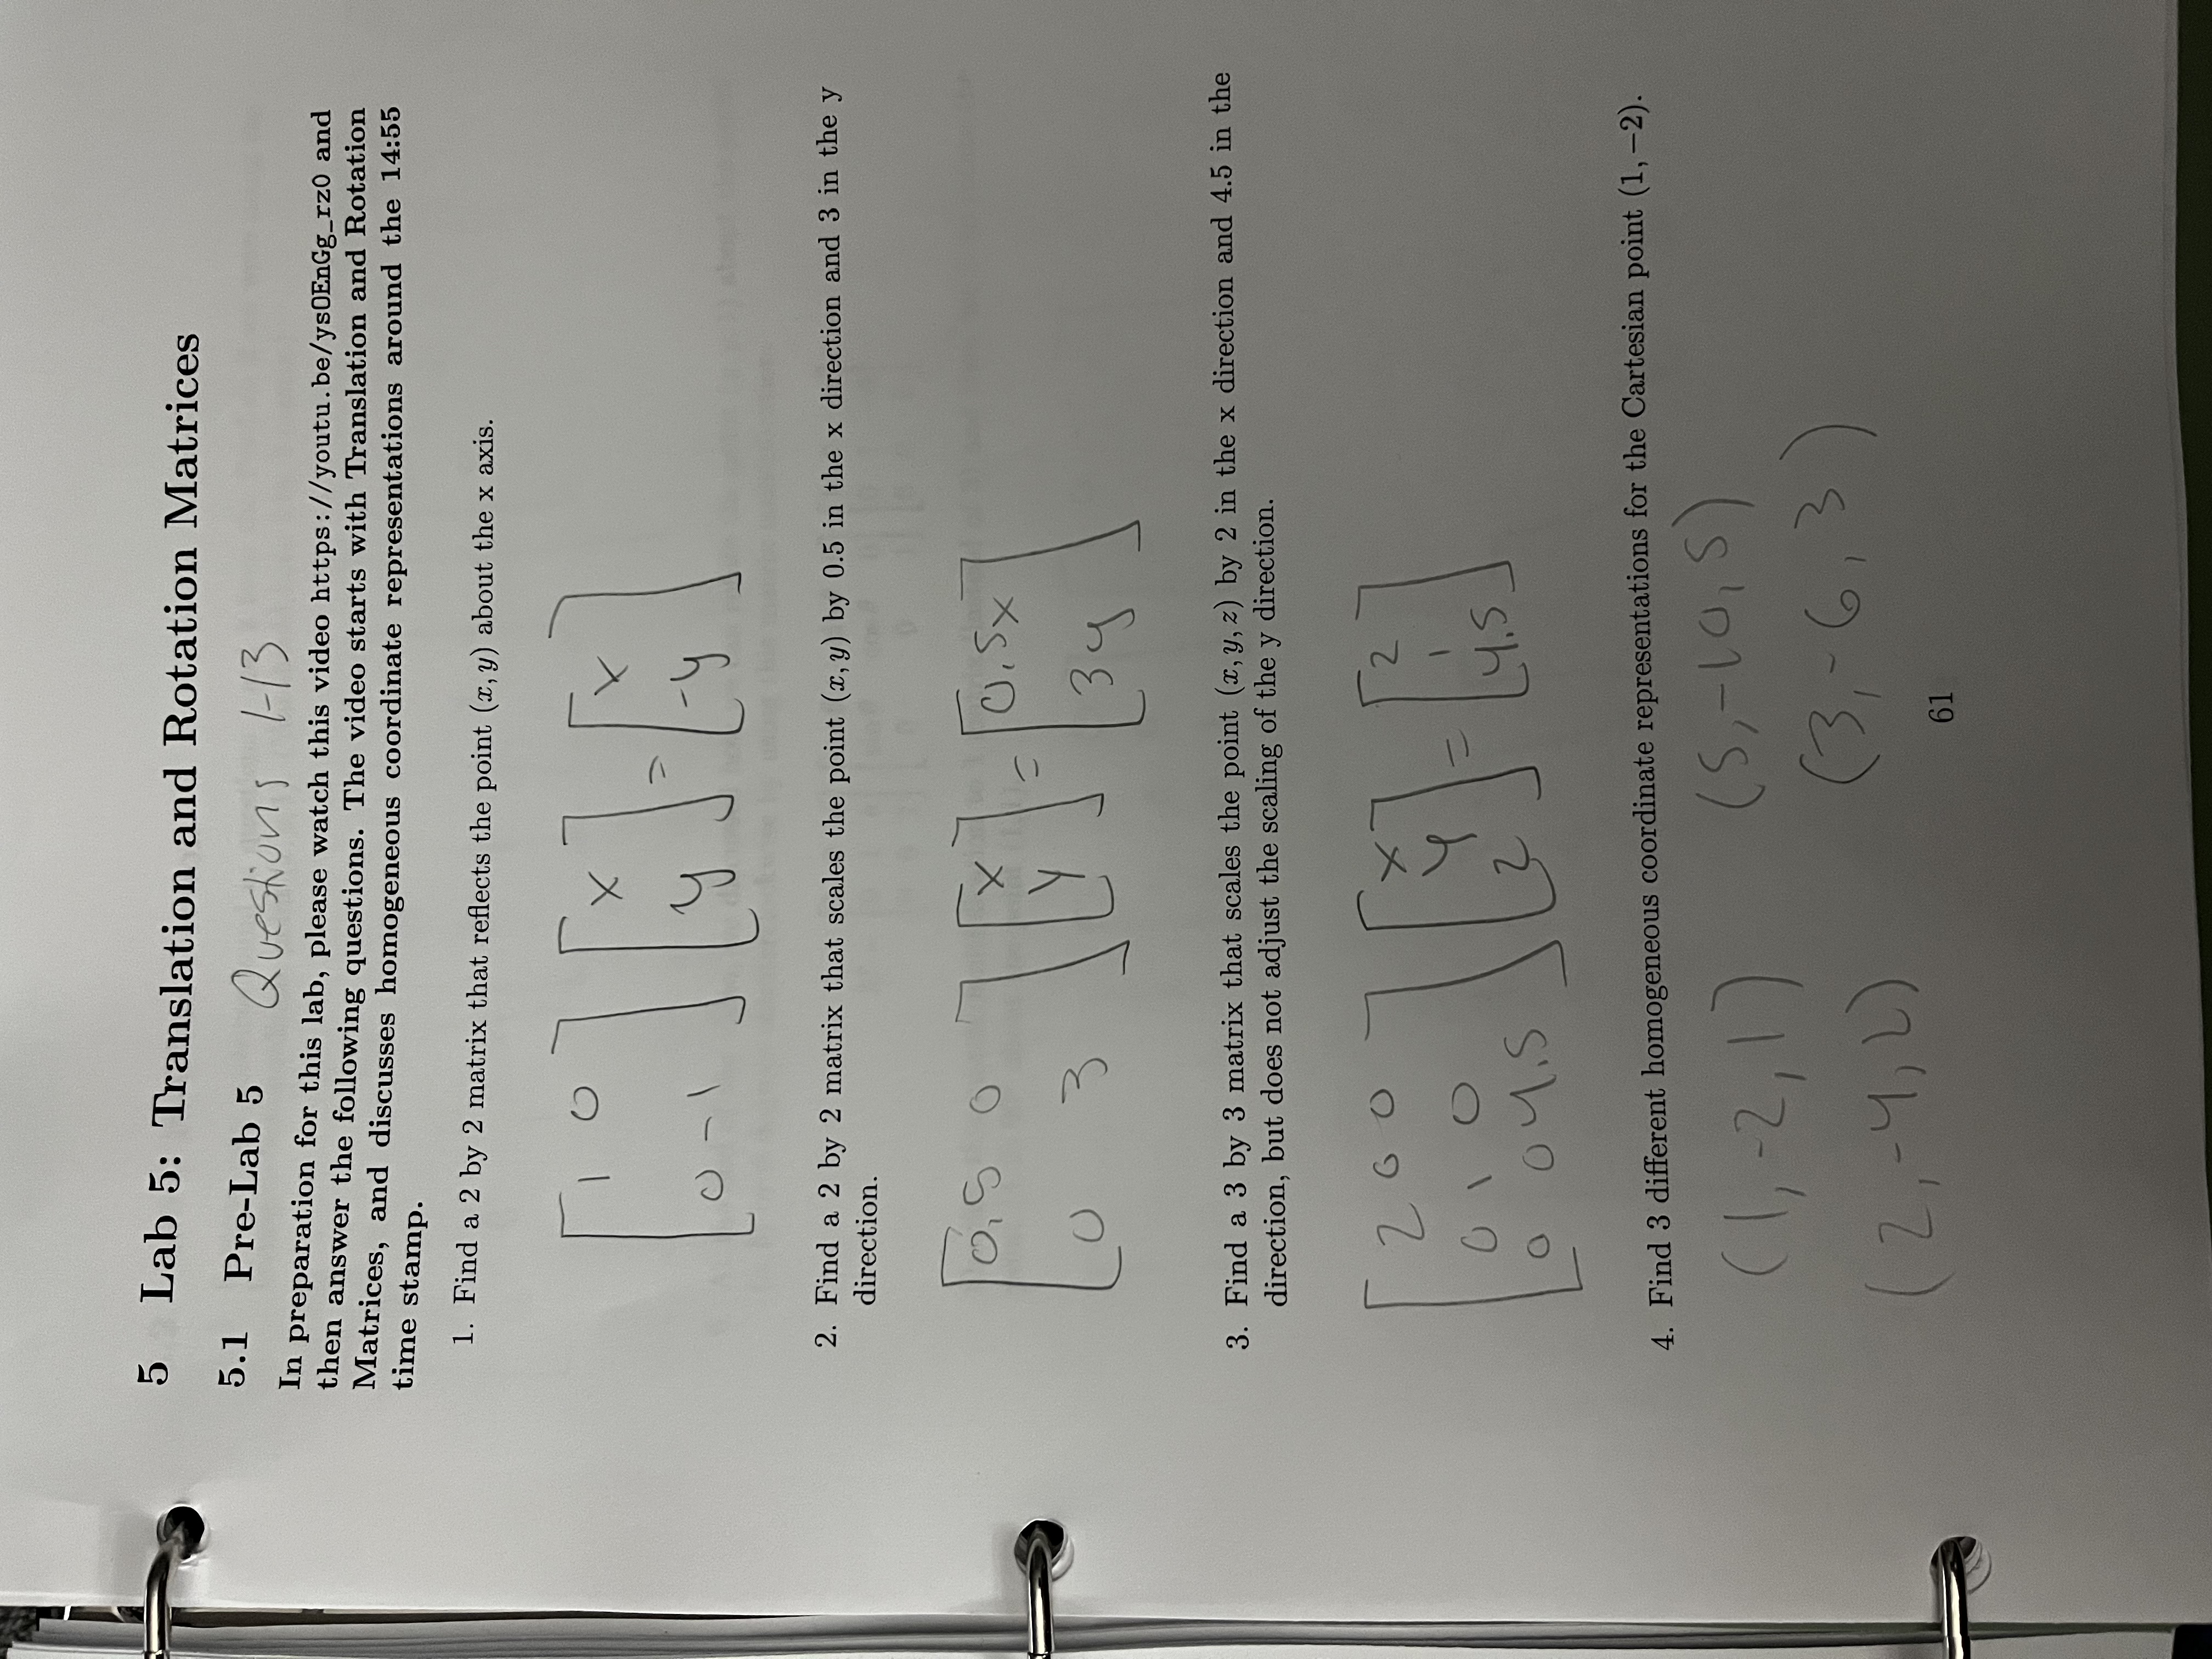 5 Lab 5: Translation and Rotation Matrices
5.1 Pre-Lab 5 Questions 1-13
In preparation for this lab, please watch this video https://youtu.be/ysOEnGg_rz0 and
then answer the following questions. The video starts with Translation and Rotation
Matrices, and discusses homogeneous coordinate representations around the 14:55
time stamp.
1. Find a 2 by 2 matrix that reflects the point (x, y) about the x axis.
[1 0] [x] = [x]
[0 -1] [y] [-y]
2. Find a 2 by 2 matrix that scales the point (x, y) by 0.5 in the x direction and 3 in the y
direction.
[0.5 0] [x] = [0.5x]
[0 3] [y] [3y]
3. Find a 3 by 3 matrix that scales the point (x, y, z) by 2 in the x direction and 4.5 in the
direction, but does not adjust the scaling of the y direction.
[2 0 0] [x] [2]
[0 1 0] [y] = [1]
[0 0 4.5] [z] [4.5]
4. Find 3 different homogeneous coordinate representations for the Cartesian point (1, −2).
(1, -2, 1) (5, -10, 5)
(2, -4, 2) (3, -6, 3)
61